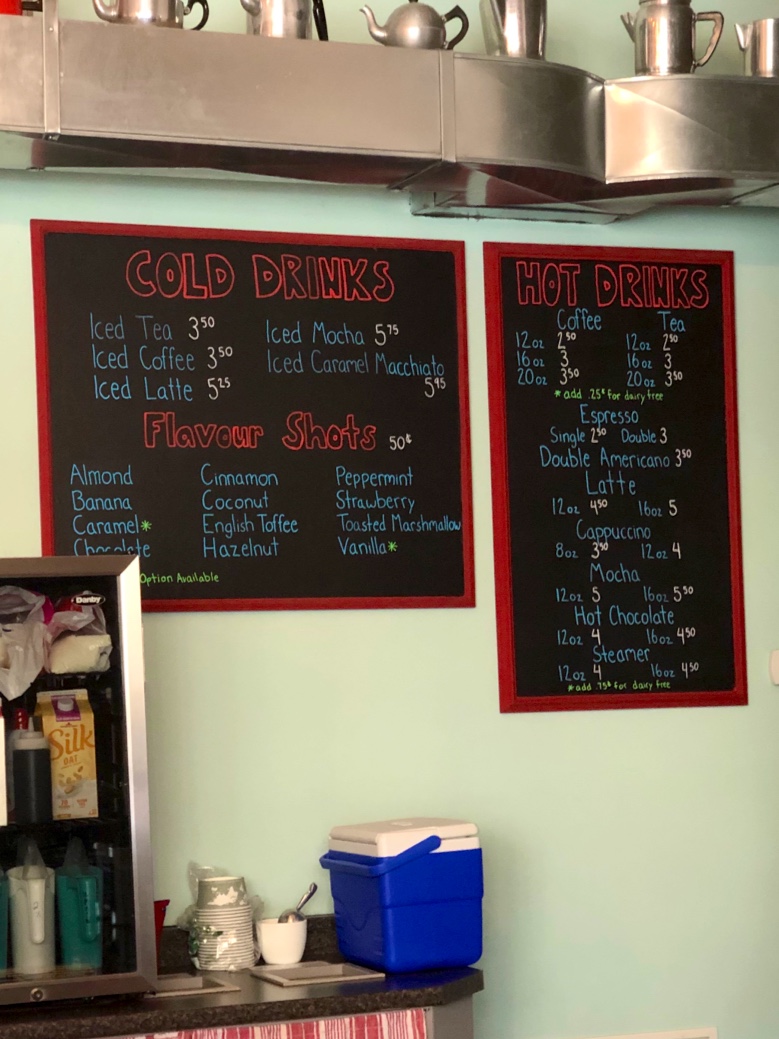 COLD DRINKS
Iced Tea 3⁵⁰
Iced Coffee 3⁵⁰
Iced Latte 5²⁵
Iced Mocha 5⁷⁵
Iced Caramel Macchiato
5⁹⁵
Flavour Shots 50¢
Almond
Banana
Caramel*
Chocolate
Cinnamon
Coconut
English Toffee
Hazelnut
Peppermint
Strawberry
Toasted Marshmallow
Vanilla*
Option Available
HOT DRINKS
Coffee Tea
12oz 2⁵⁰ 12oz 2⁵⁰
16oz 3 16oz 3
20oz 3⁵⁰ 20oz 3⁵⁰
* add .25¢ for dairy free
Espresso
Single 2⁵⁰ Double 3
Double Americano 3⁵⁰
Latte
12oz 4⁵⁰ 16oz 5
Cappuccino
8oz 3⁵⁰ 12oz 4
Mocha
12oz 5 16oz 5⁵⁰
Hot Chocolate
12oz 4 16oz 4⁵⁰
Steamer
12oz 4 16oz 4⁵⁰
* add .75¢ for dairy free
Danby
Silk
OAT